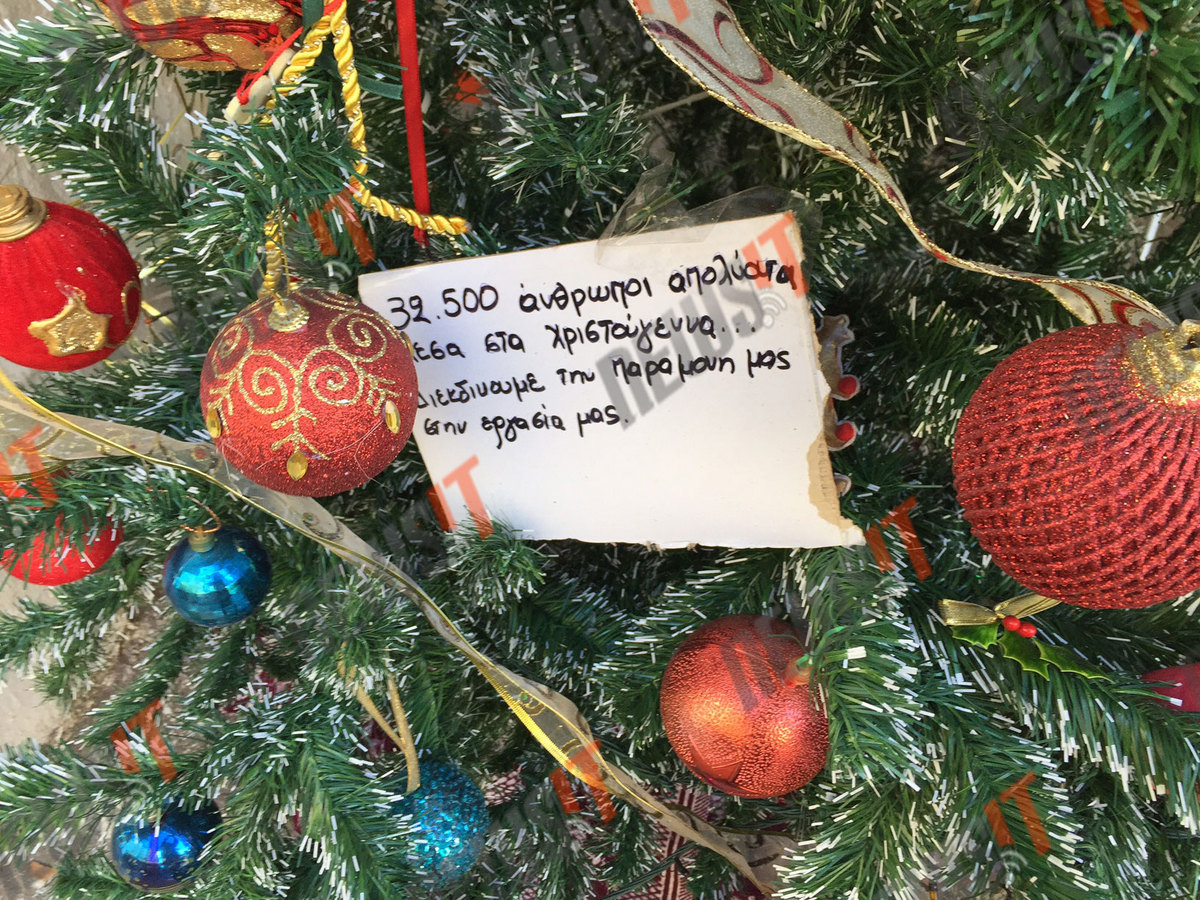 32.500 άνθρωποι απολύονται
μεσα στα χριστούγεννα...
Διεκδικουμε την παραμονη μας
στην εργασία μας.
NEWSIT